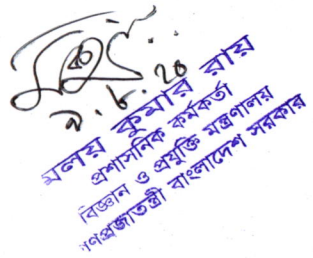 ৯.৮.২০
মলয় কুমার রায়
প্রশাসনিক কর্মকর্তা
বিজ্ঞান ও প্রযুক্তি মন্ত্রণালয়
গণপ্রজাতন্ত্রী বাংলাদেশ সরকার